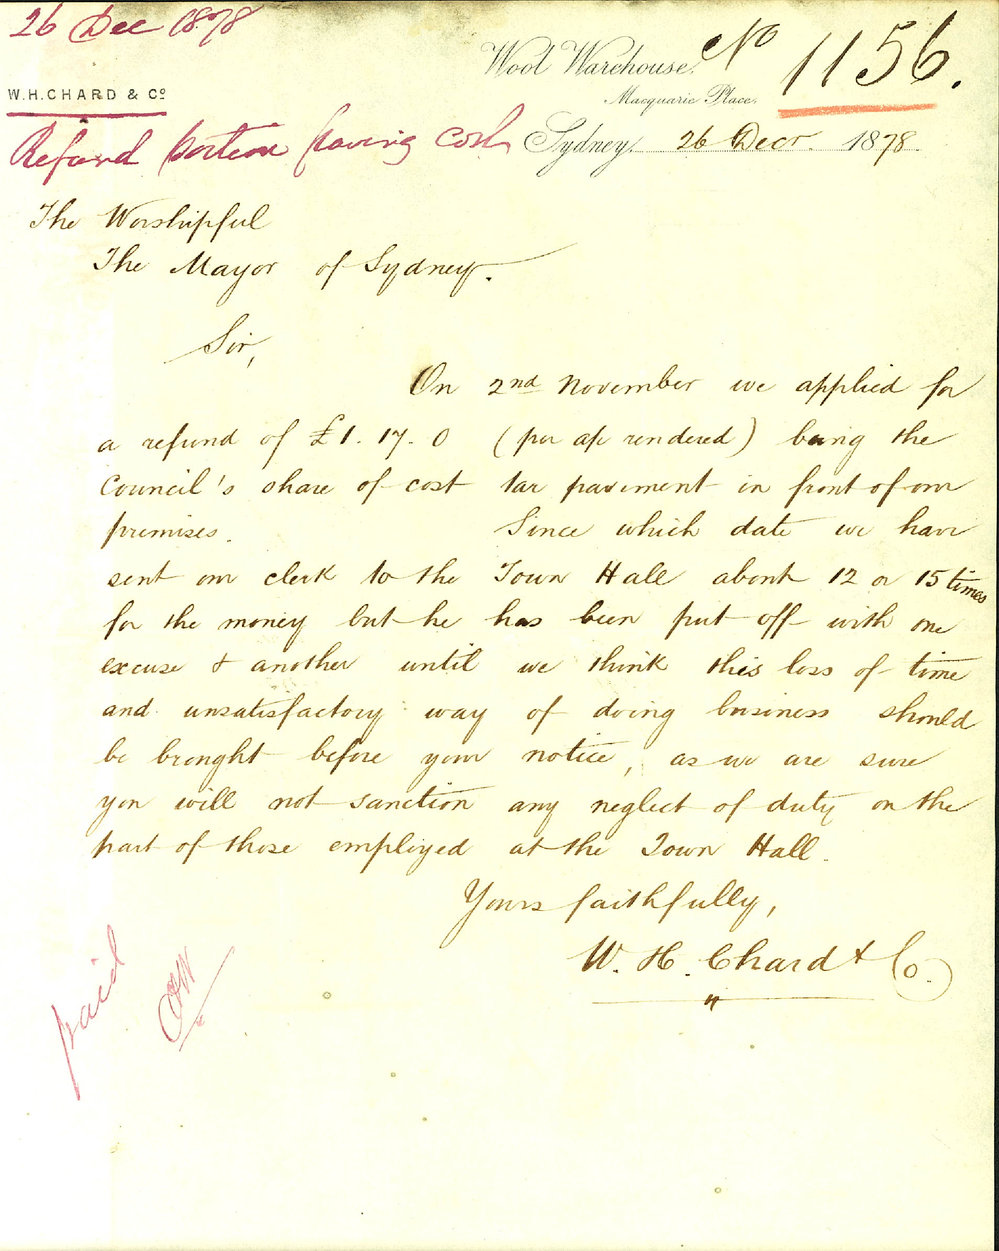 26 Dec 1878
Wool Warehouse. No 1156.
W.H.CHARD & Co
Macquarie Place.
Refund portion paving cost
Sydney. 26 Decr. 1878.
The Worshipful
The Mayor of Sydney.
Sir,
On 2nd November we applied for
a refund of £1.17.0 (per a/c rendered) being the
Council's share of cost tar pavement in front of our
premises. Since which date we have
sent our clerk to the Town Hall about 12 or 15 times
for the money but he has been put off with one
excuse & another until we think this loss of time
and unsatisfactory way of doing business should
be brought before your notice, as we are sure
you will not sanction any neglect of duty on the
part of those employed at the Town Hall.
Yours faithfully,
W. H. Chard & Co.
paid